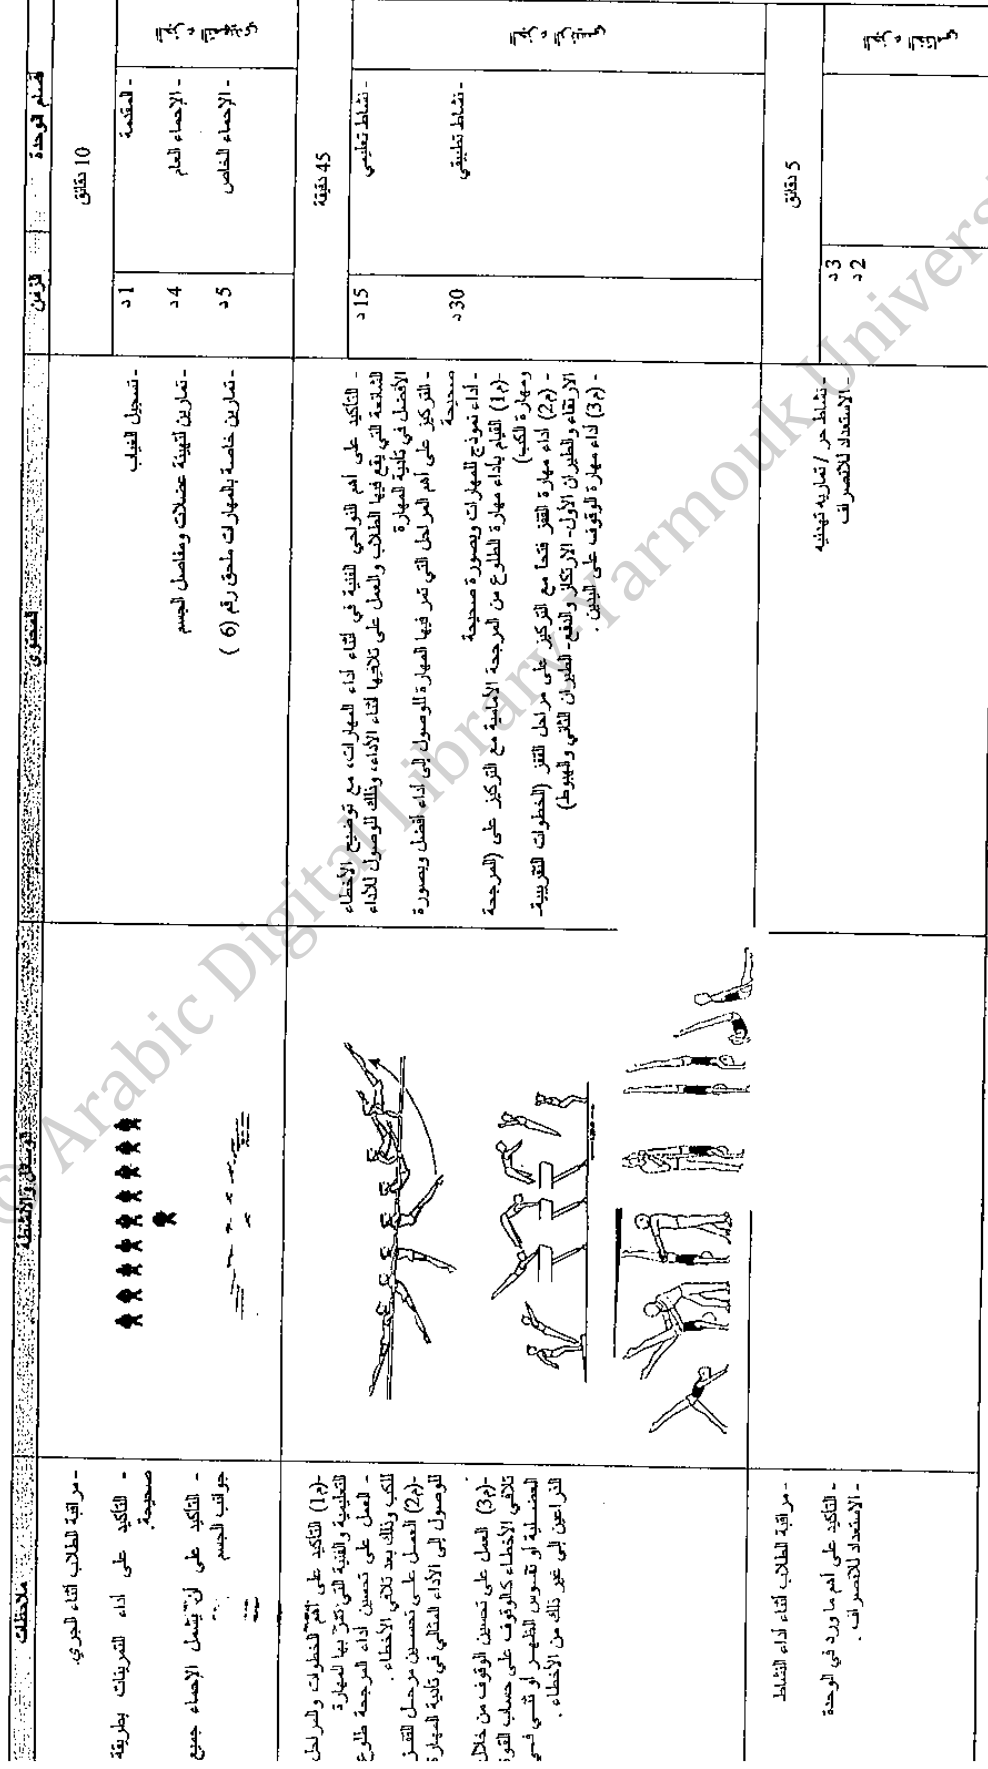 قسم الوحدة
الزمن
المحتوى
الوسائل والأنشطة
ملاحظات
10 دقائق
- المقدمة
1 د
- تسجيل الغياب
- مراقبة الطلاب أثناء الجري.
- الإحماء العام
4 د
- تمارين لتهيئة عضلات ومفاصل الجسم
- التأكيد على أداء التمرينات بطريقة
صحيحة.
- الإحماء الخاص
5 د
- تمارين خاصة بالمهارات ملحق رقم ( 6 )
- التأكيد على أن يشمل الإحماء جميع
جوانب الجسم
45 دقيقة
- نشاط تعليمي
15 د
- التأكيد على أهم النواحي الفنية في أثناء أداء المهارات، مع توضيح الأخطاء
الشائعة التي يقع فيها الطلاب والعمل على تلافيها أثناء الأداء، وذلك للوصول للأداء
الأفضل في تأدية المهارة
- التركيز على أهم المراحل التي تمر فيها المهارة للوصول إلى أداء أفضل وبصورة
صحيحة
- نشاط تطبيقي
30 د
- أداء نموذج المهارات وبصورة صحيحة
-(م1) القيام بأداء مهارة الطلوع من المرجحة الأمامية مع التركيز على (المرجحة
ومهارة الكب)
- (م2) أداء مهارة القفز فتحا مع التركيز على مراحل القفز (الخطوات التقريبية-
الارتقاء والطيران الأول- الارتكاز والدفع- الطيران الثاني والهبوط)
- (م3) أداء مهارة الوقوف على اليدين .
-(م1) التأكيد على أهم الخطوات والمراحل
التعليمية والفنية التي تمر بها المهارة
- العمل على تحسين أداء المرجحة طلوع
الكب وذلك بعد تلافي الأخطاء .
-(م2) العمل على تحسين مرحل القفز
للوصول إلى الأداء المثالي في تأدية المهارة
-(م3) العمل على تحسين الوقوف من خلال
تلافي الأخطاء كالوقوف على حساب القوة
العضلية أو تقوس الظهر أو ثني في
الذراعين إلى غير ذلك من الأخطاء .
5 دقائق
3 د
2 د
- نشاط حر / تمارين تهيئية
- الاستعداد للانصراف
- مراقبة الطلاب أثناء أداء النشاط
- التأكيد على أهم ما ورد في الوحدة
- الاستعداد للانصراف .
© Arabic Digital Library-Yarmouk Universi